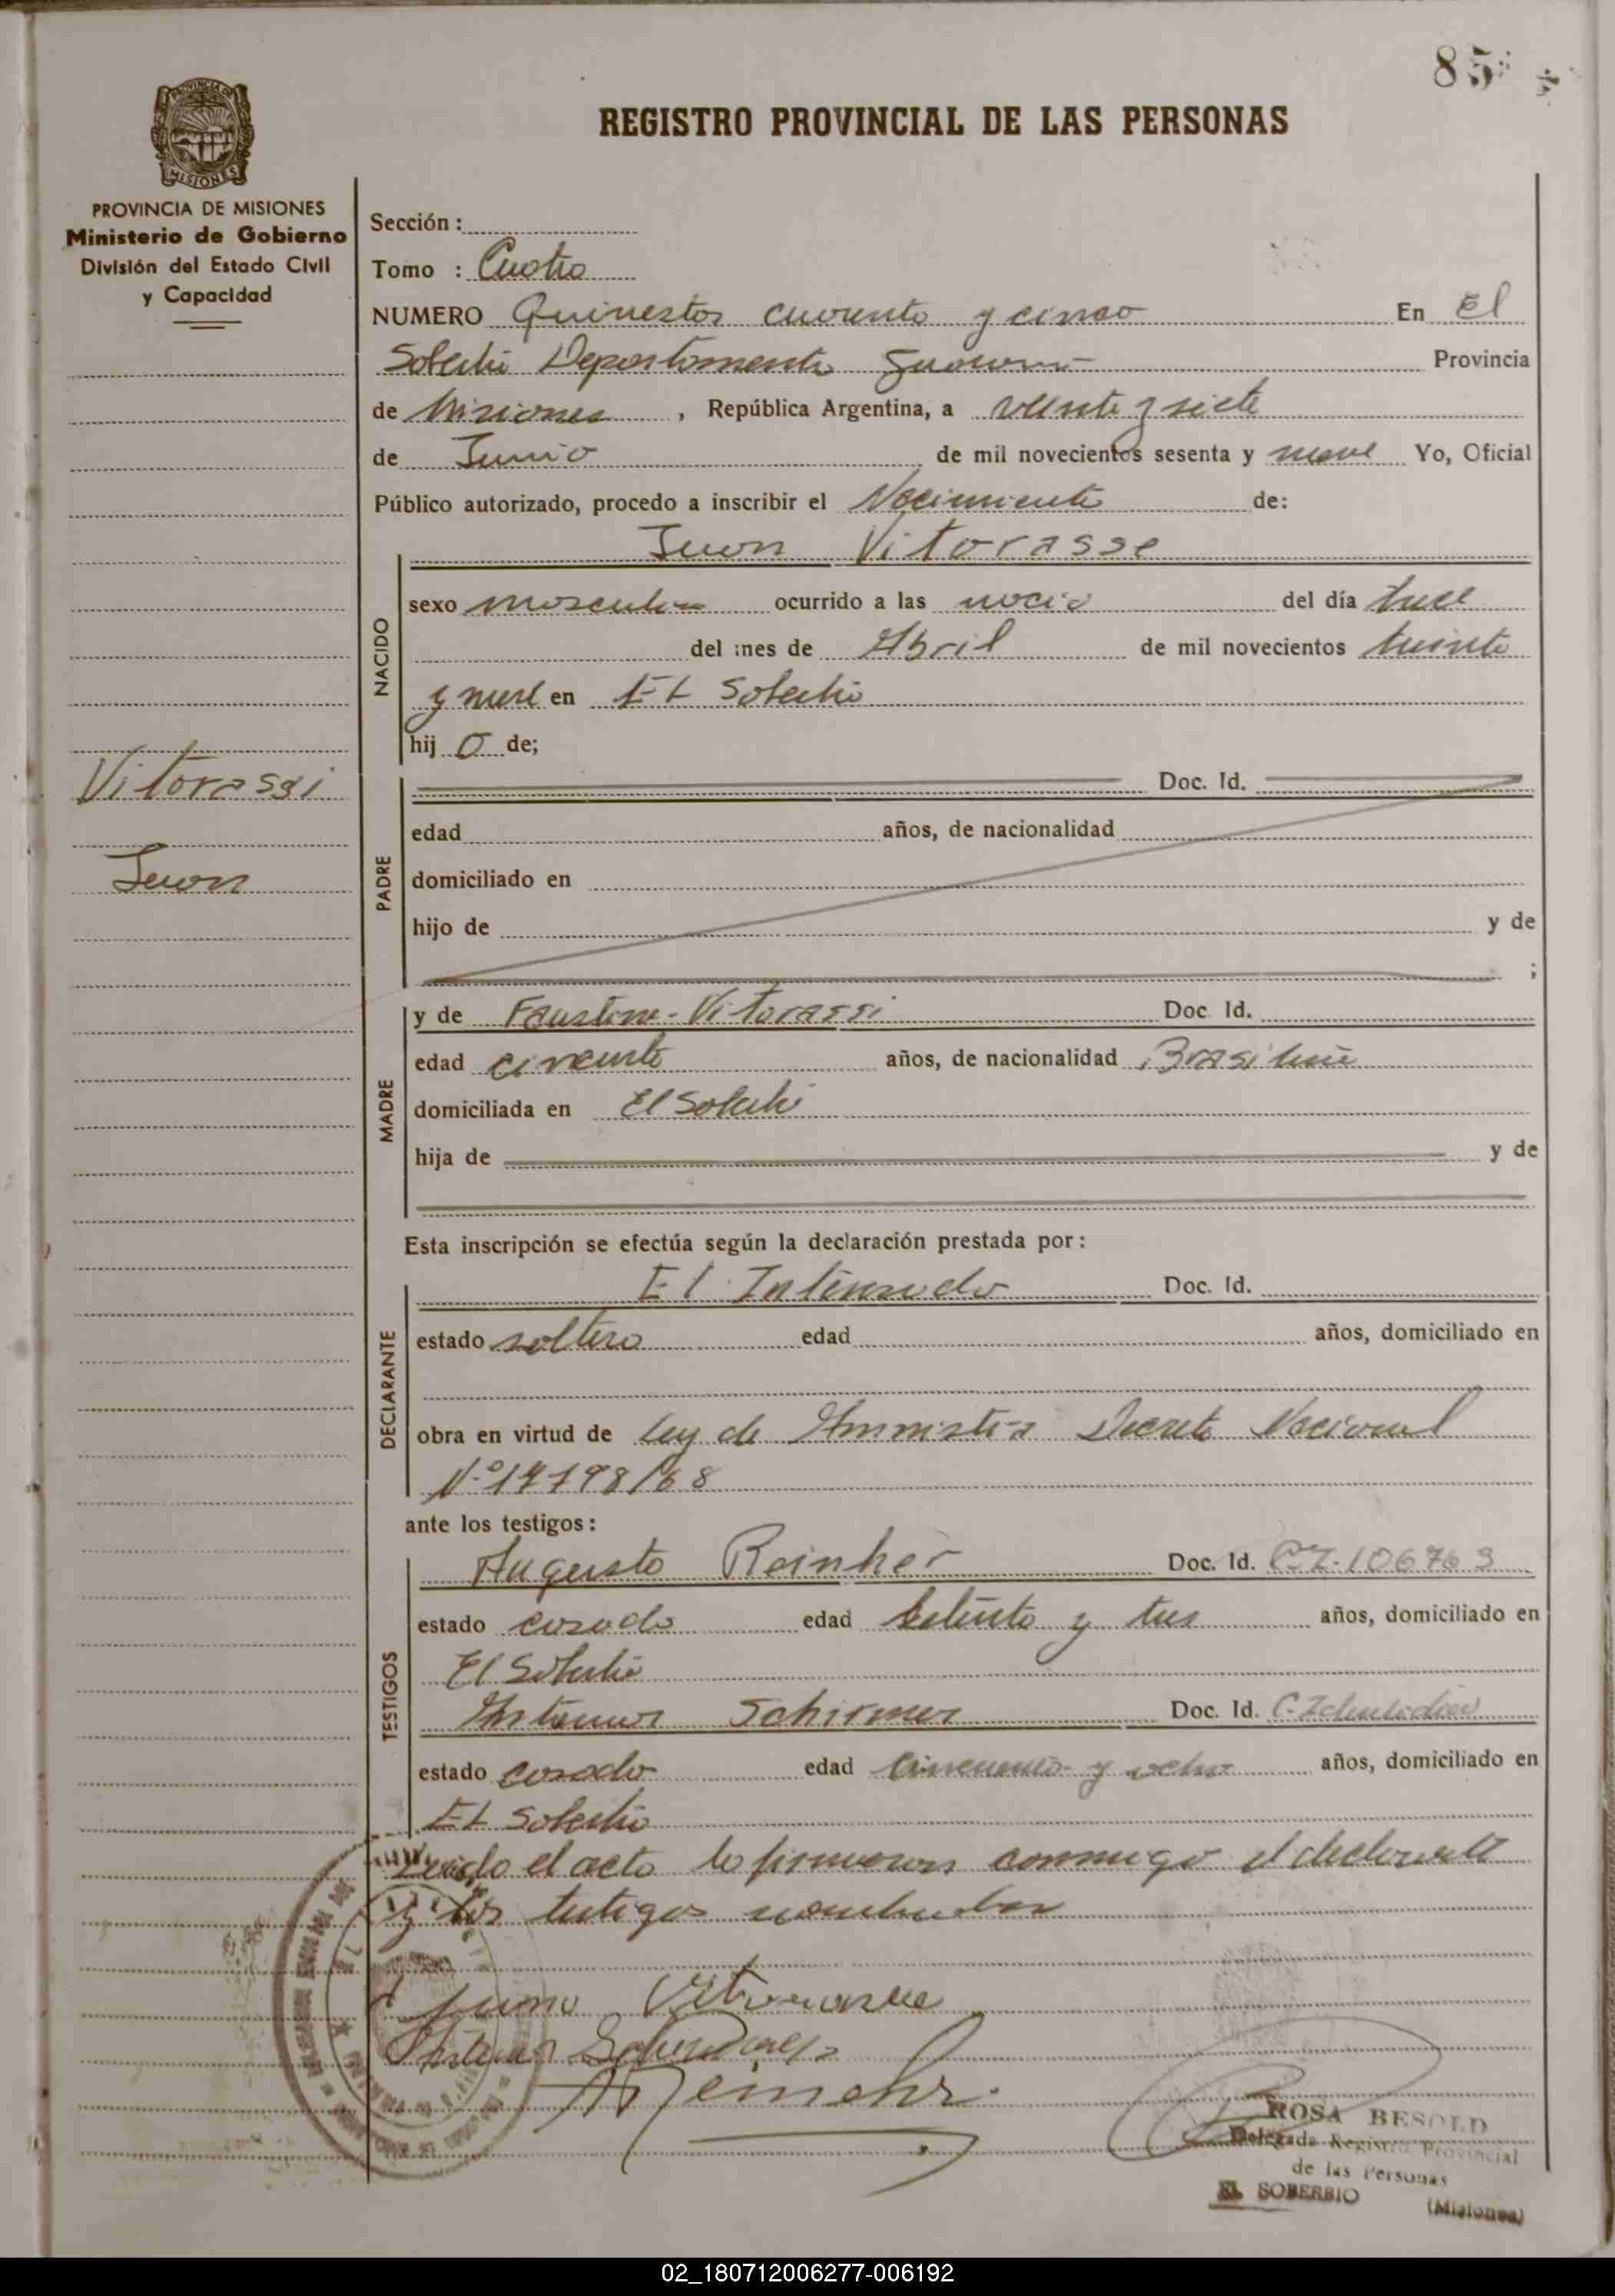 85
REGISTRO PROVINCIAL DE LAS PERSONAS
PROVINCIA DE MISIONES
MISIONES
PROVINCIA DE MISIONES
Ministerio de Gobierno
División del Estado Civil
y Capacidad
Vitorassi
Juan
Sección :
Tomo : Cuatro
NUMERO Quinientos cuarenta y cinco En El
Soberbio Departamento Guaraní Provincia
de Misiones , República Argentina, a veinte y siete
de Junio de mil novecientos sesenta y nueve Yo, Oficial
Público autorizado, procedo a inscribir el Nacimiento de:
NACIDO
Juan Vitorasse
sexo masculino ocurrido a las del día trece
del mes de Abril de mil novecientos treinta
y nueve en El Soberbio
hij o de;
PADRE
Doc. Id.
edad años, de nacionalidad
domiciliado en
hijo de y de
;
MADRE
y de Faustina Vitorassi Doc. Id.
edad años, de nacionalidad Brasileña
domiciliada en El Soberbio
hija de y de
Esta inscripción se efectúa según la declaración prestada por :
DECLARANTE
El Interesado Doc. Id.
estado soltero edad años, domiciliado en
obra en virtud de Ley de Amnistia Decreto Nacional
Nº 17198/68
ante los testigos :
TESTIGOS
Augusto Reinher Doc. Id. C.I. 106763
estado casado edad setenta y tres años, domiciliado en
El Soberbio
Schirmer Doc. Id.
estado casado edad cincuenta y ocho años, domiciliado en
El Soberbio
Leido el acto lo firmaron conmigo el declarante
y los testigos nombrados
ROSA BESOLD
Delegada Registro Provincial
de las Personas
EL SOBERBIO (Misiones)
02_180712006277-006192